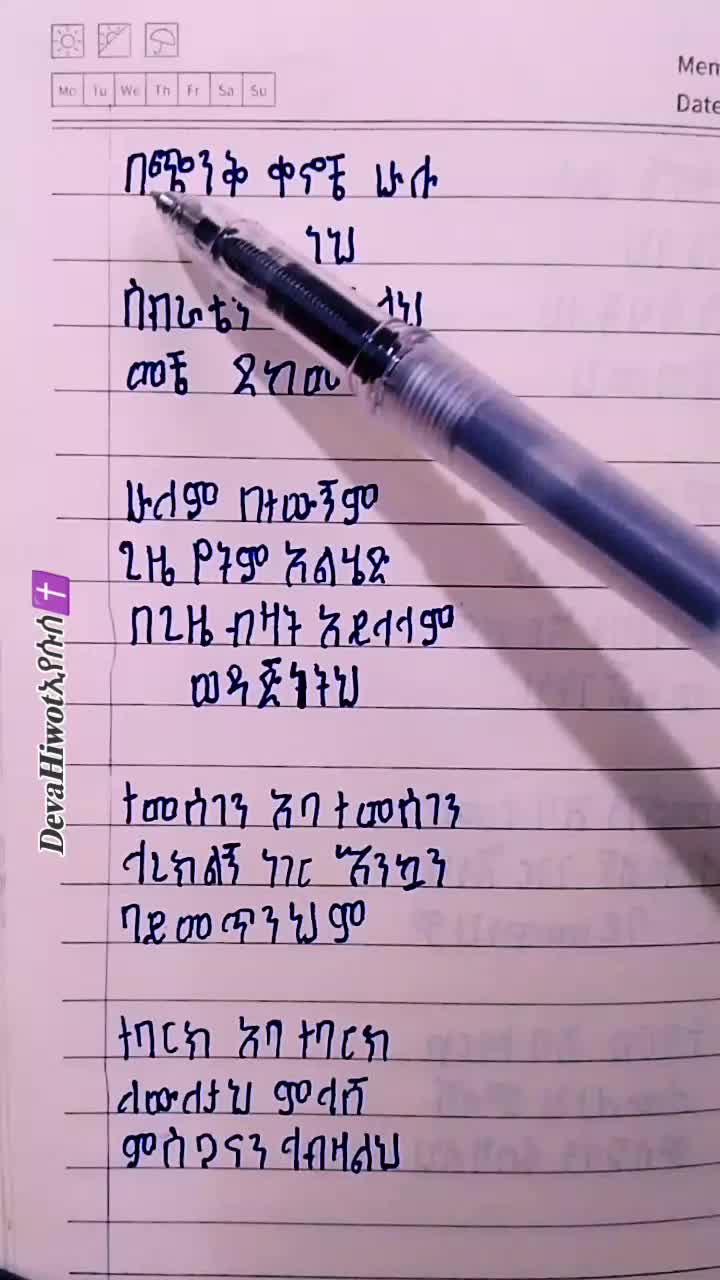 Mo Tu We Th Fr Sa Su
Date
በጭንቅ ቀኖቼ ሁሉ
ነህ
መቼ
ሁሉም ቢተውኝም
ጊዜ የትም አልሄድ
በጊዜ ብዛት አይላላም
ወዳጅነትህ
ተመስገን አባ ተመስገን
ላረክልኝ ነገር እንኳን
ባይመጥንህም
ተባርክ አባ ተባርክ
ለውለታህ ምላሽ
ምስጋናን ላብዛልህ
DevaHiwotኢየሱስ